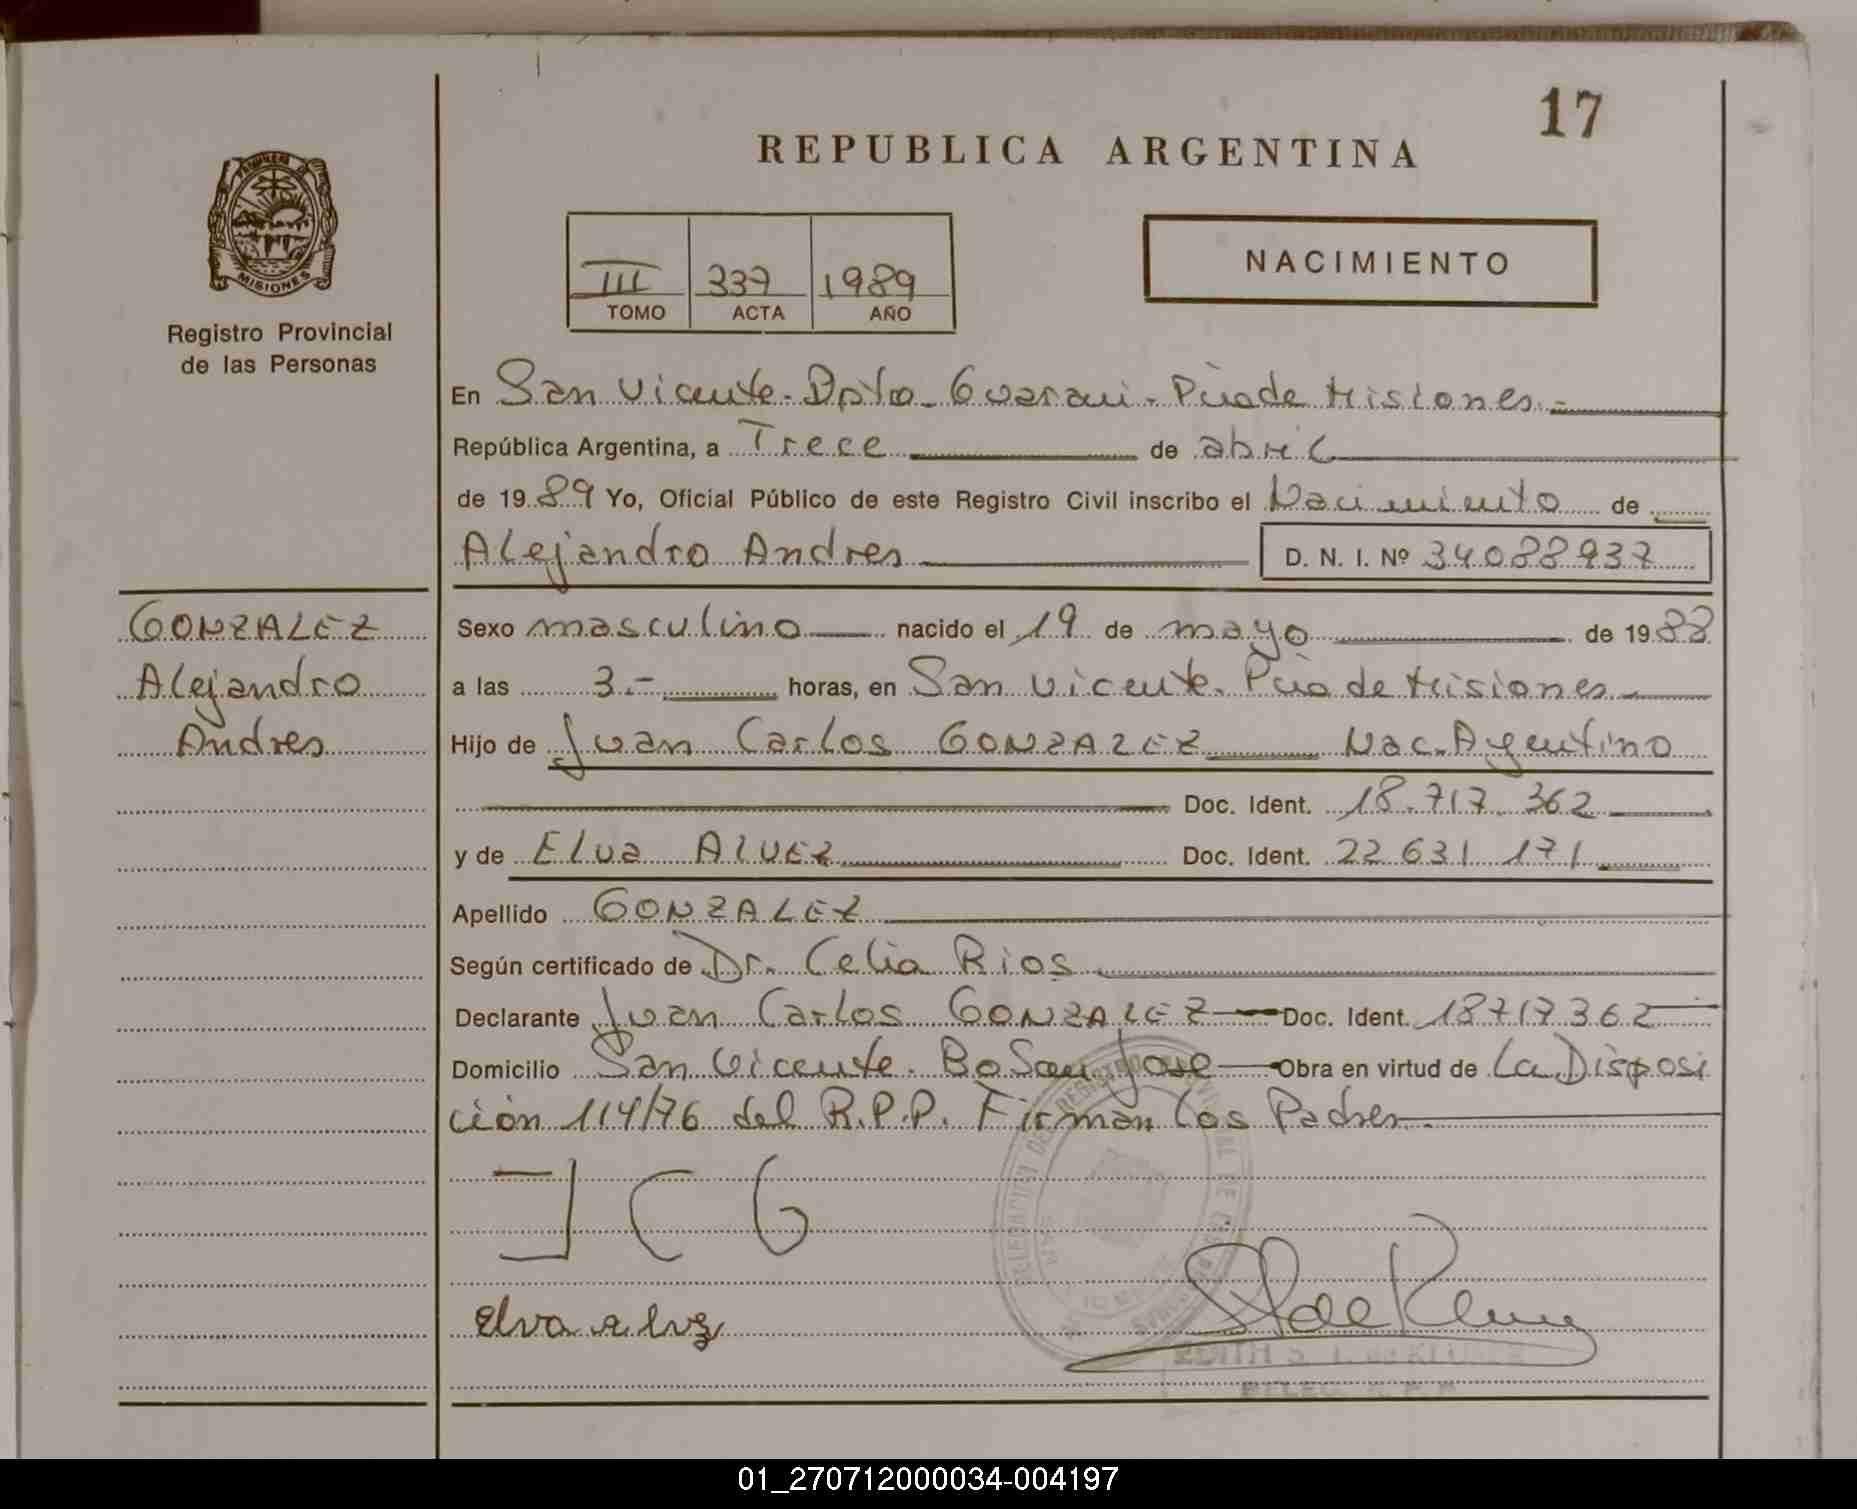 17
REPUBLICA ARGENTINA
PROVINCIA
MISIONES
Registro Provincial
de las Personas
III 337 1989
TOMO ACTA AÑO
NACIMIENTO
En San Vicente - Dpto - Guarani - Pcia de Misiones.-
República Argentina, a Trece de abril
de 1989 Yo, Oficial Público de este Registro Civil inscribo el Nacimiento de
Alejandro Andres D. N. I. Nº 34088937
GONZALEZ
Alejandro
Andres
Sexo masculino nacido el 19 de mayo de 1988
a las 3.- horas, en San Vicente. Pcia de Misiones
Hijo de Juan Carlos GONZALEZ Nac. Argentino
Doc. Ident. 18.717.362
y de Elva Alvez Doc. Ident. 22 631 171
Apellido GONZALEZ
Según certificado de Dr. Celia Rios
Declarante Juan Carlos GONZALEZ Doc. Ident. 18717362
Domicilio San Vicente. Bo San Jose Obra en virtud de La Disposi
ción 114/76 del R.P.P. Firman los Padres.
J C G
Elva alvz
01_270712000034-004197